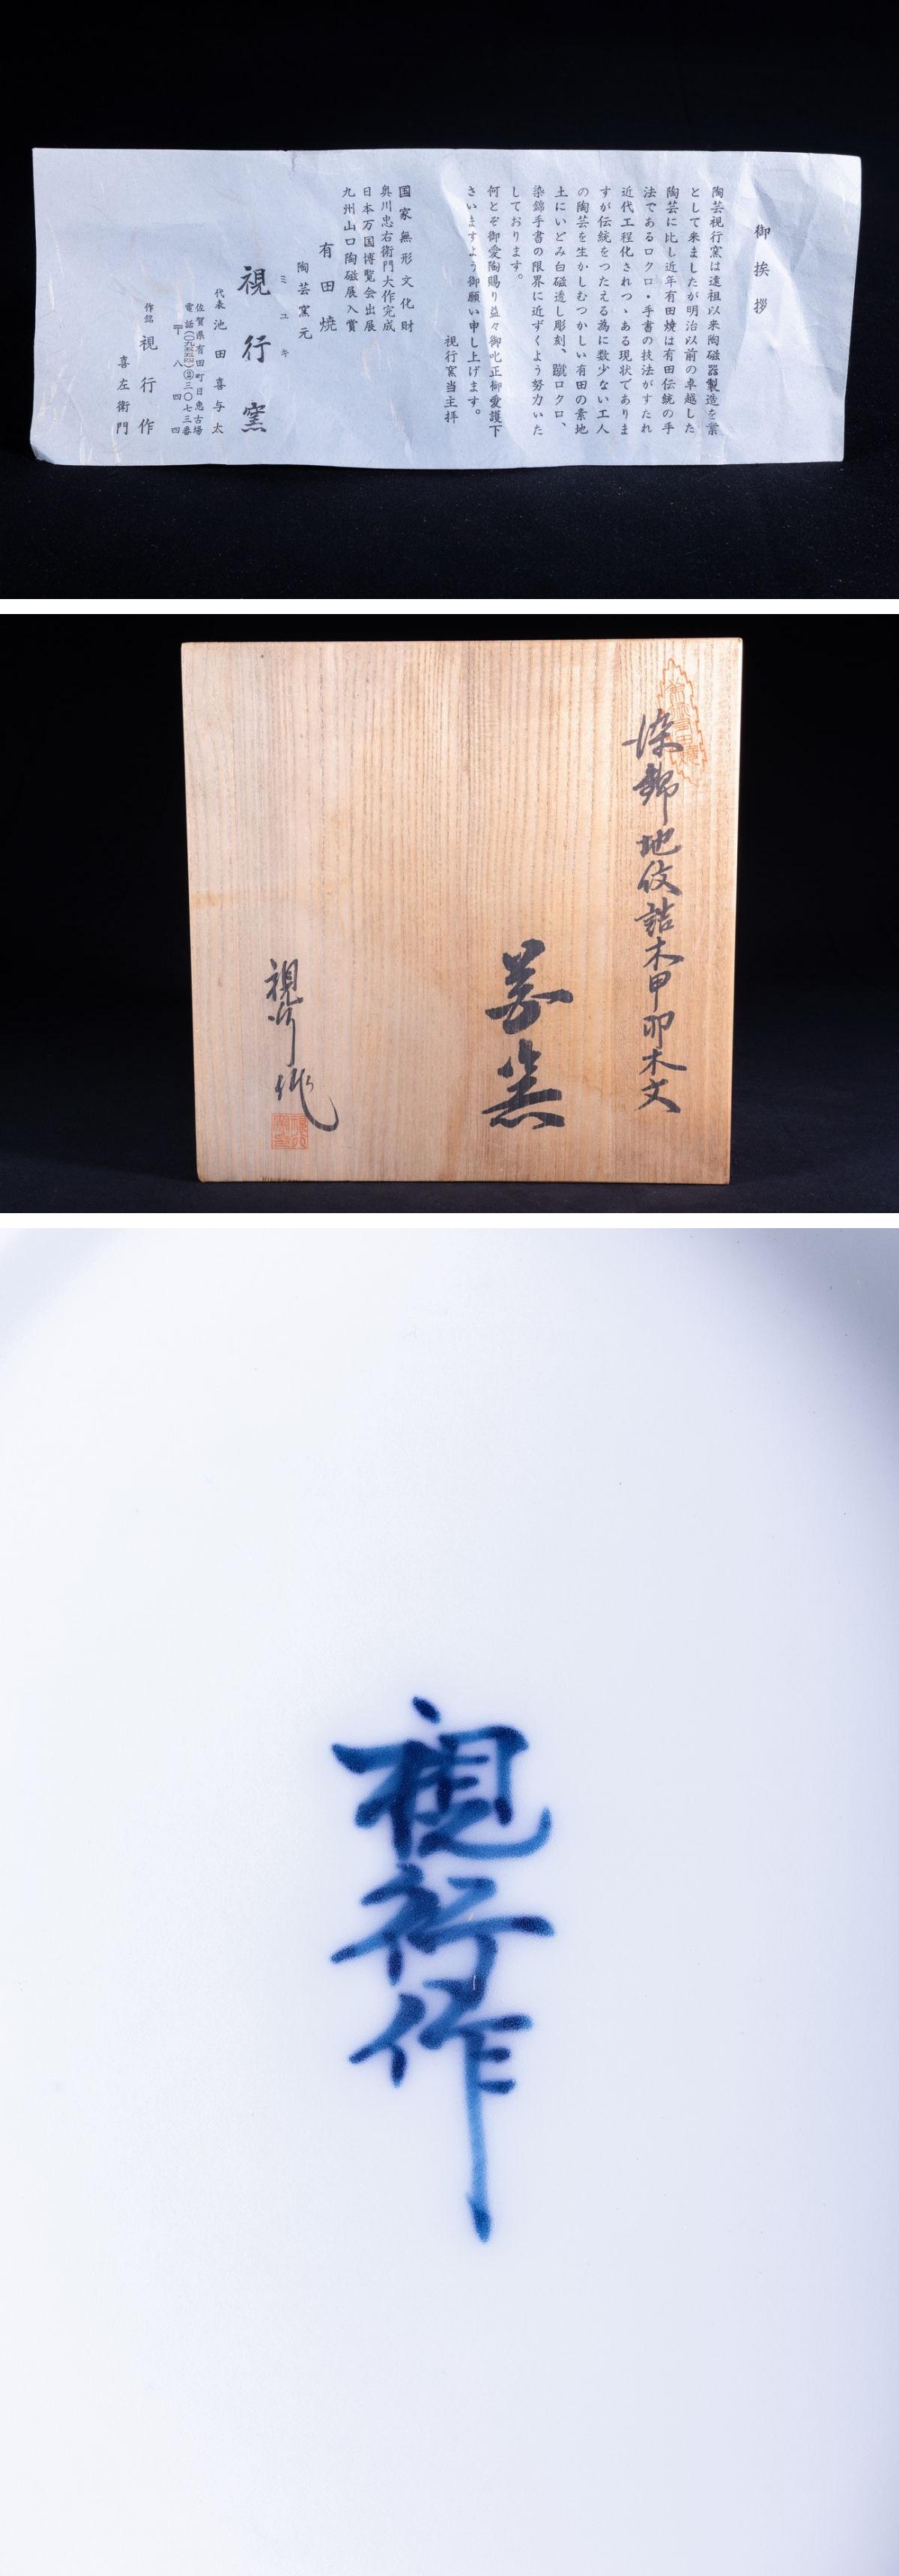 御挨拶
陶芸視行窯は遠祖以来陶磁器製造を業
として来ましたが明治以前の卓越した
陶芸に比し近年有田焼は有田伝統の手
法であるロクロ・手書の技法がすたれ
近代工程化されつゝある現状でありま
すが伝統をつたえる為に数少ない工人
の陶芸を生かしむつかしい有田の素地
土にいどみ白磁透し彫刻、蹴ロクロ、
染錦手書の限界に近ずくよう努力いた
しております。
何とぞ御愛陶賜り益々御叱正御愛護下
さいますよう御願い申し上げます。
視行窯当主拝
国家無形文化財
奥川忠右衛門大作完成
日本万国博覧会出展
九州山口陶磁展入賞
有田焼
陶芸窯元
ミユキ
視行窯
代表 池田喜与太
佐賀県有田町日恵古場
電話(〇九五五四)②三〇七三番
〒八四四
作銘 視行作
喜左衛門
染錦地伩詰木甲卯木文
視行作
視行作